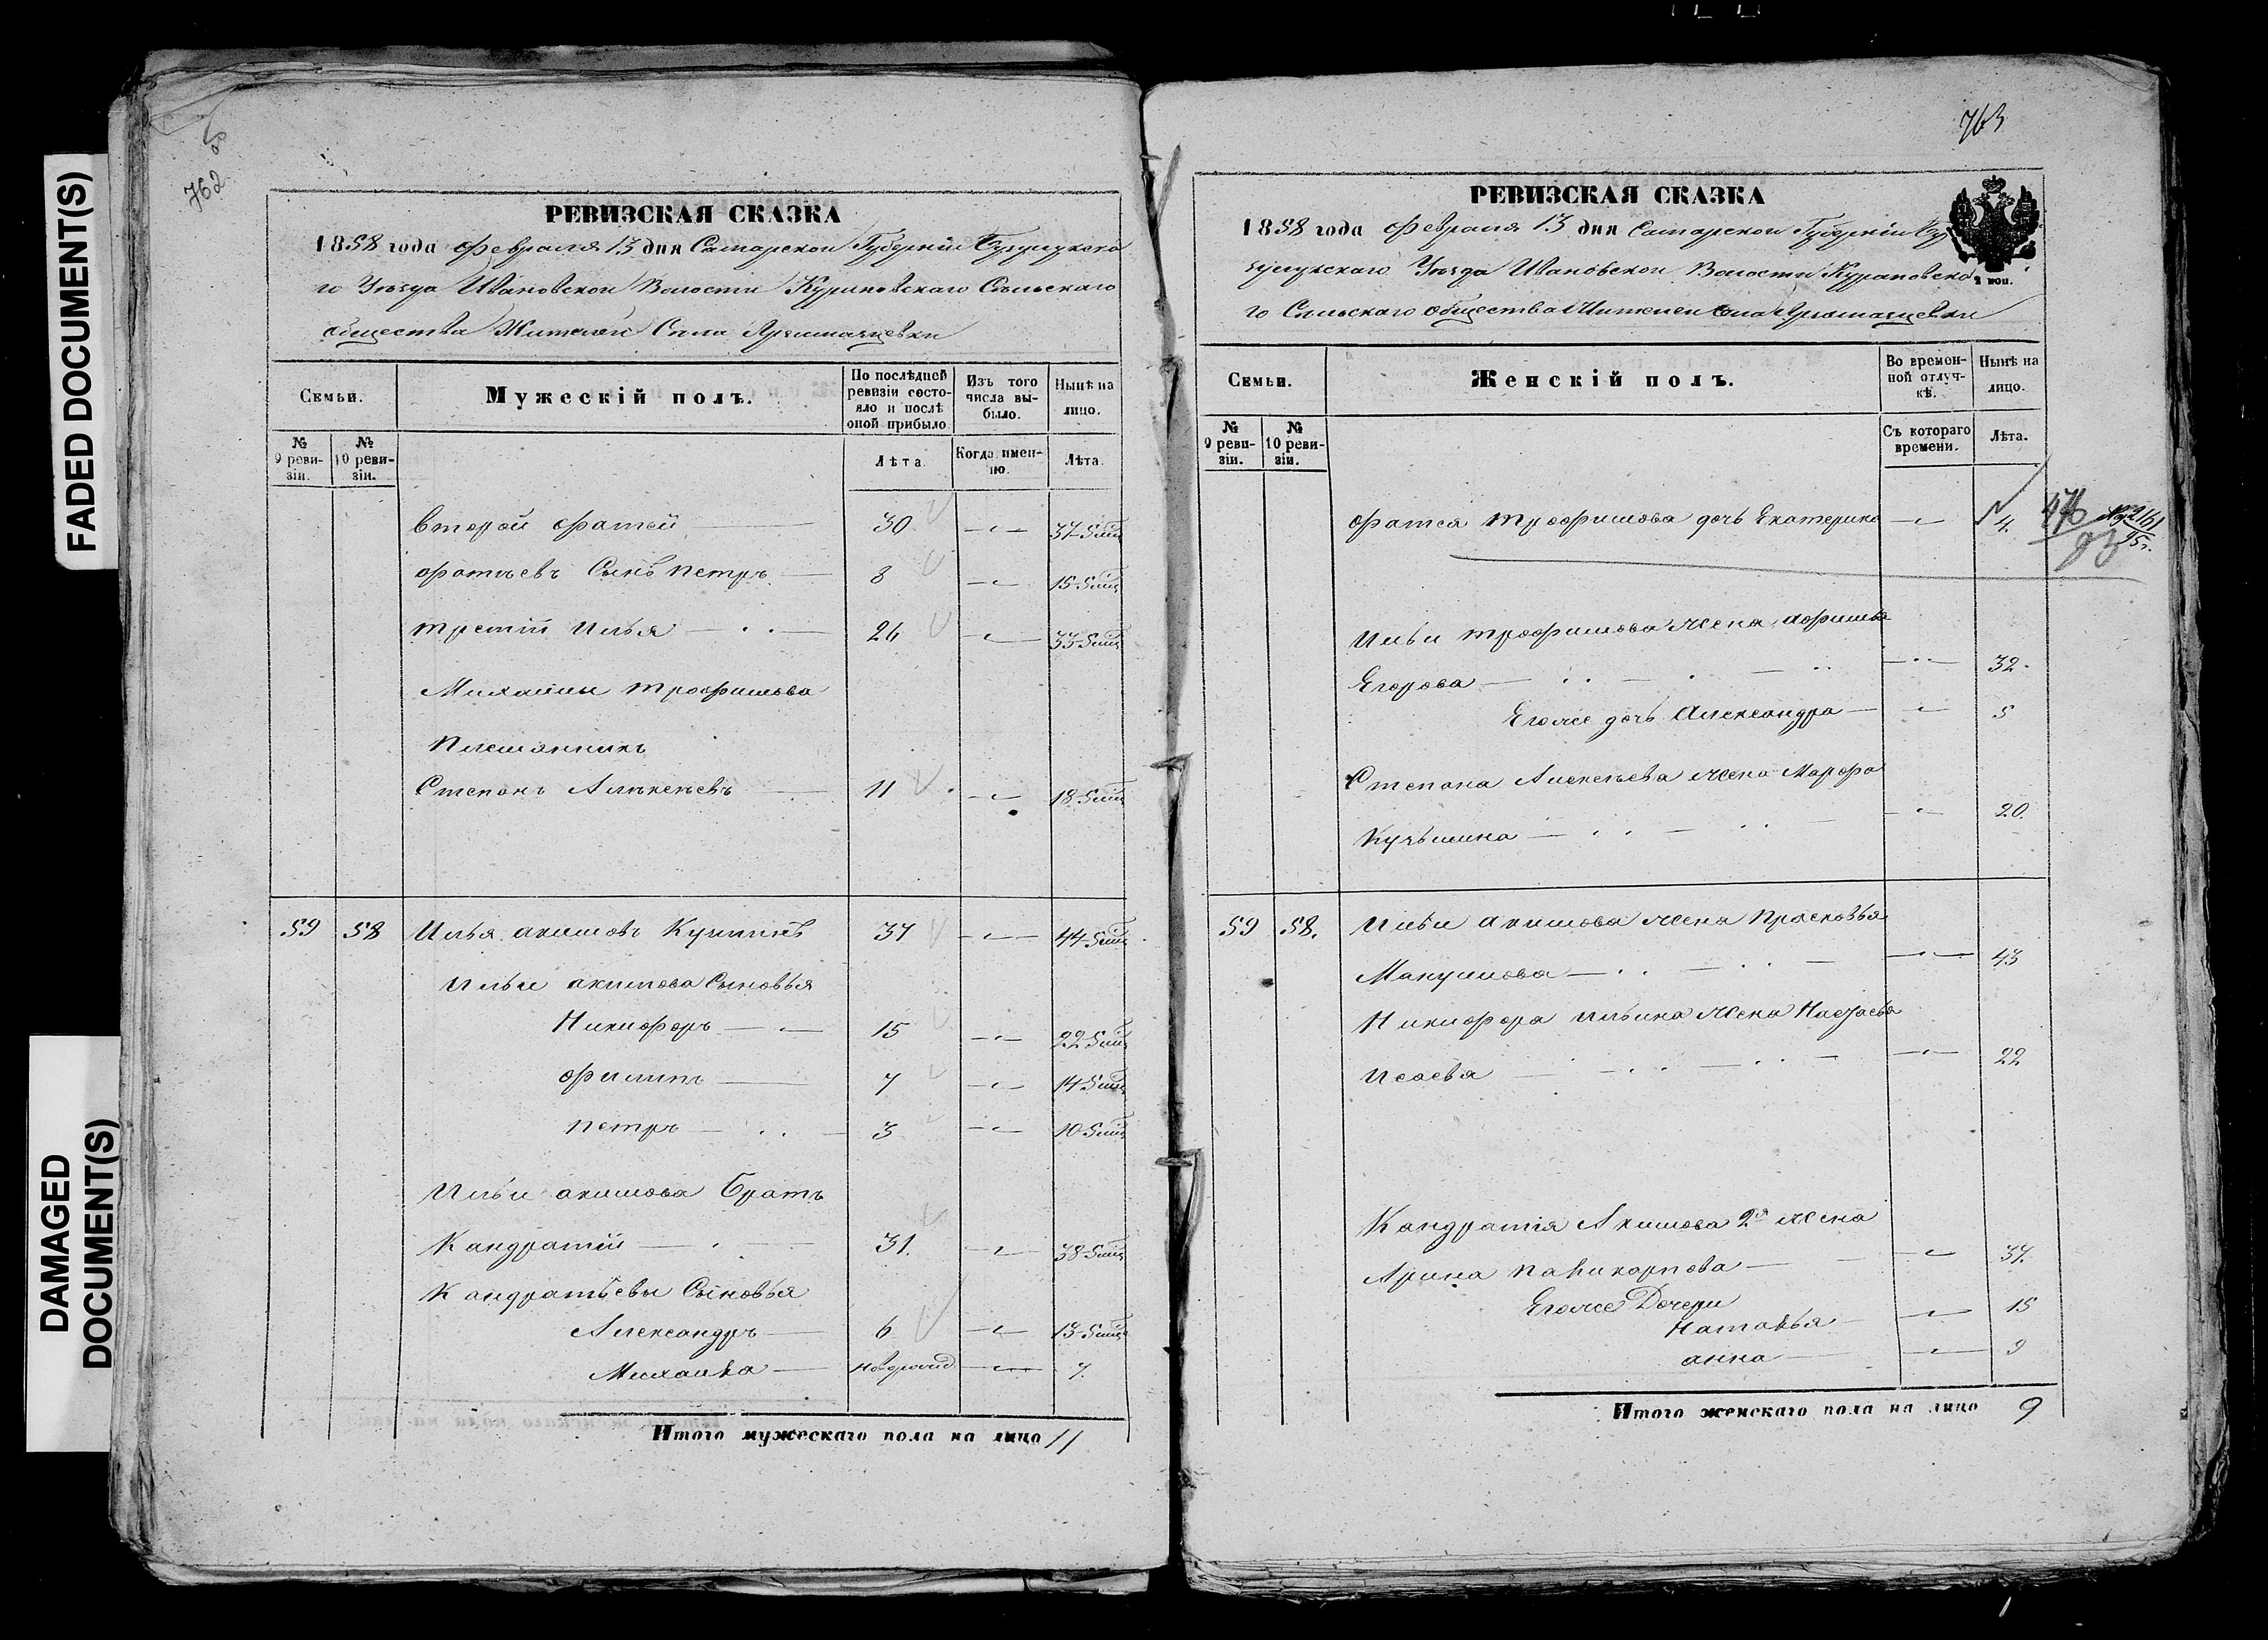 FADED DOCUMENT(S)
DAMAGED
DOCUMENT(S)
762
РЕВИЗСКАЯ СКАЗКА
1858 года февраля 13 дня Самарской Губерніи Бузулукска
го Уѣзда Ивановской Волости Сѣльскаго
общества Жителей Села
Семьи.
Мужескій полъ.
По послѣдней
ревизіи состо-
яло и послѣ
оной прибыло
Изъ того
числа вы-
было.
Нынѣ на
лицо.
№
9 реви-
зіи.
№
10 реви-
зіи.
Лѣта
Когда имен-
но.
Лѣта.
второй фатей 30 37
фатѣевъ Сынъ петръ 8 15
третій Илья 26 33
Михайлы трофимова
племянникъ
Степанъ 11 18
59 58 Илья акимовъ 37 44
Ильи акимова Сыновья
Никифоръ 15 22
филипъ 7 14
петръ 3 10
Ильи акимова братъ
Кандратій 31. 38
Кандратьевы Сыновья
Александръ 6 13
Михайла 7.
Итого мужескаго пола на лицо 11
763
РЕВИЗСКАЯ СКАЗКА
1858 года февраля 13 дня Самарской Губерніи Бу
зулукскаго Уѣзда Ивановской Волости
го Сѣльскаго общества Жителей Села
2 коп.
Семьи.
Женскій полъ.
Во времен-
ной отлуч-
кѣ.
Нынѣ на
лицо.
№
9 реви-
зіи.
№
10 реви-
зіи.
Съ котораго
времени.
Лѣта.
фатея трофимова дочь Екатерина 4.
Ильи трофимова жена афимья
Егорова 32.
Егоже дочь Александра 5
Степана жена Марфа
20.
59 58. Ильи акимова жена прасковья
43
Никифора Ильина жена
Исаева 22
Кандратія Акимова 2я жена
Арина 37.
Егоже Дочери
Наталья 15
анна 9
Итого женскаго пола на лицо 9